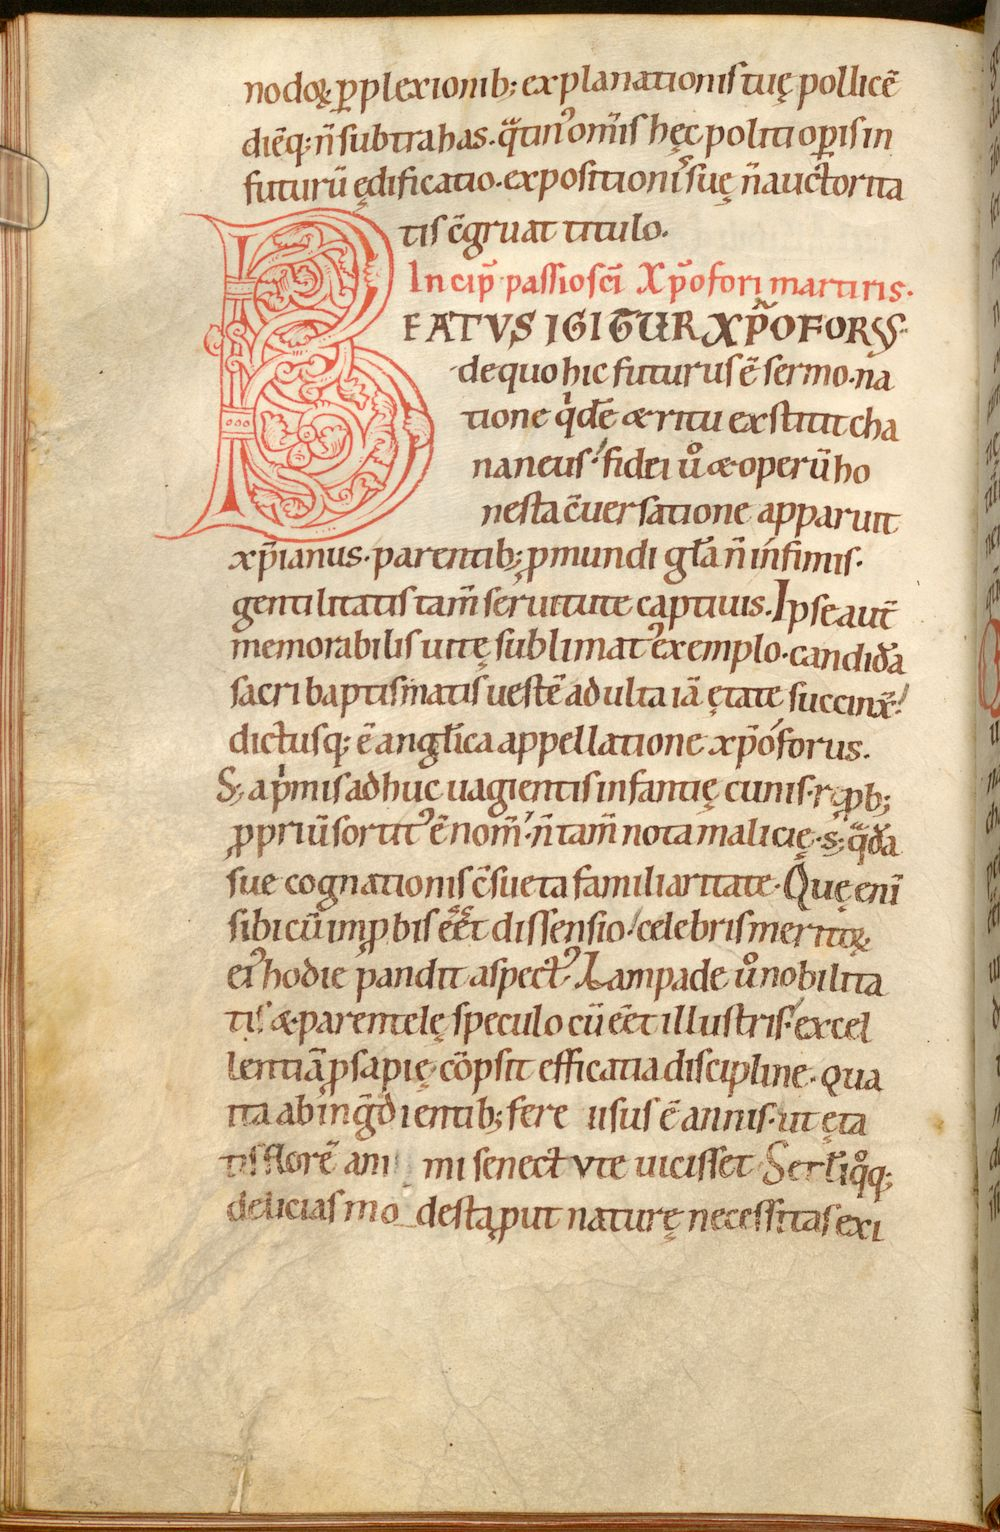 nodoꝝ ꝑplexionib; explanationis tuę pollicē
diēq; n̄ subtrahas. qͣtin᾽ om̄is hęc politi oꝑis in
futurū ędificatio. expositionis̉ suę n̄ auctorita
tis c̄gruat titulo.
Incip̄ passio sc̄i Xp̄ofori martiris.
BEATVS IGITUR XP̄OFORVS.
de quo hic futurus ē sermo. na
tione qͥdē æ ritu exstitit cha
naneus. fidei ůͦ æ operū ho
nesta c̄uersatione apparuit
xp̄ianus. parentib; ꝓ mundi gl̄a n̄ infimis.
gentilitatis tam̄ seruitute captiuis. Ipse aut̄
memorabilis uitę sublimat᾽ exemplo. candida
sacri baptismatis uestē adulta iā ętate succinx̄.
dictusq; ē angl̄ica appellatione xp̄oforus.
S; a pͥmis adhuc uagientis infantię cunis. rępb;
ꝓpriū sortit᾽ ē nom̄. n̄ tam̄ nota malicię. s; qͣdā
sue cognationis c̄sueta familiaritate. Quę eni̅
sibi cū imꝓbis eēt dissensio. celebris meritoꝝ
ei᾽ hodie pandit aspect᾽. Lampade ůͦ nobilita
tis æ parentelę speculo cū eēt illustris. excel
lentiā ꝓsapię cōpsit efficatia discipline. Qua
ita ab ingͣdientib; fere usus ē annis. ut ęta
tis florē animi senectute uicisset. Set rl̄iqͦq;
delicias modestę ꝓut naturę necessitas exi